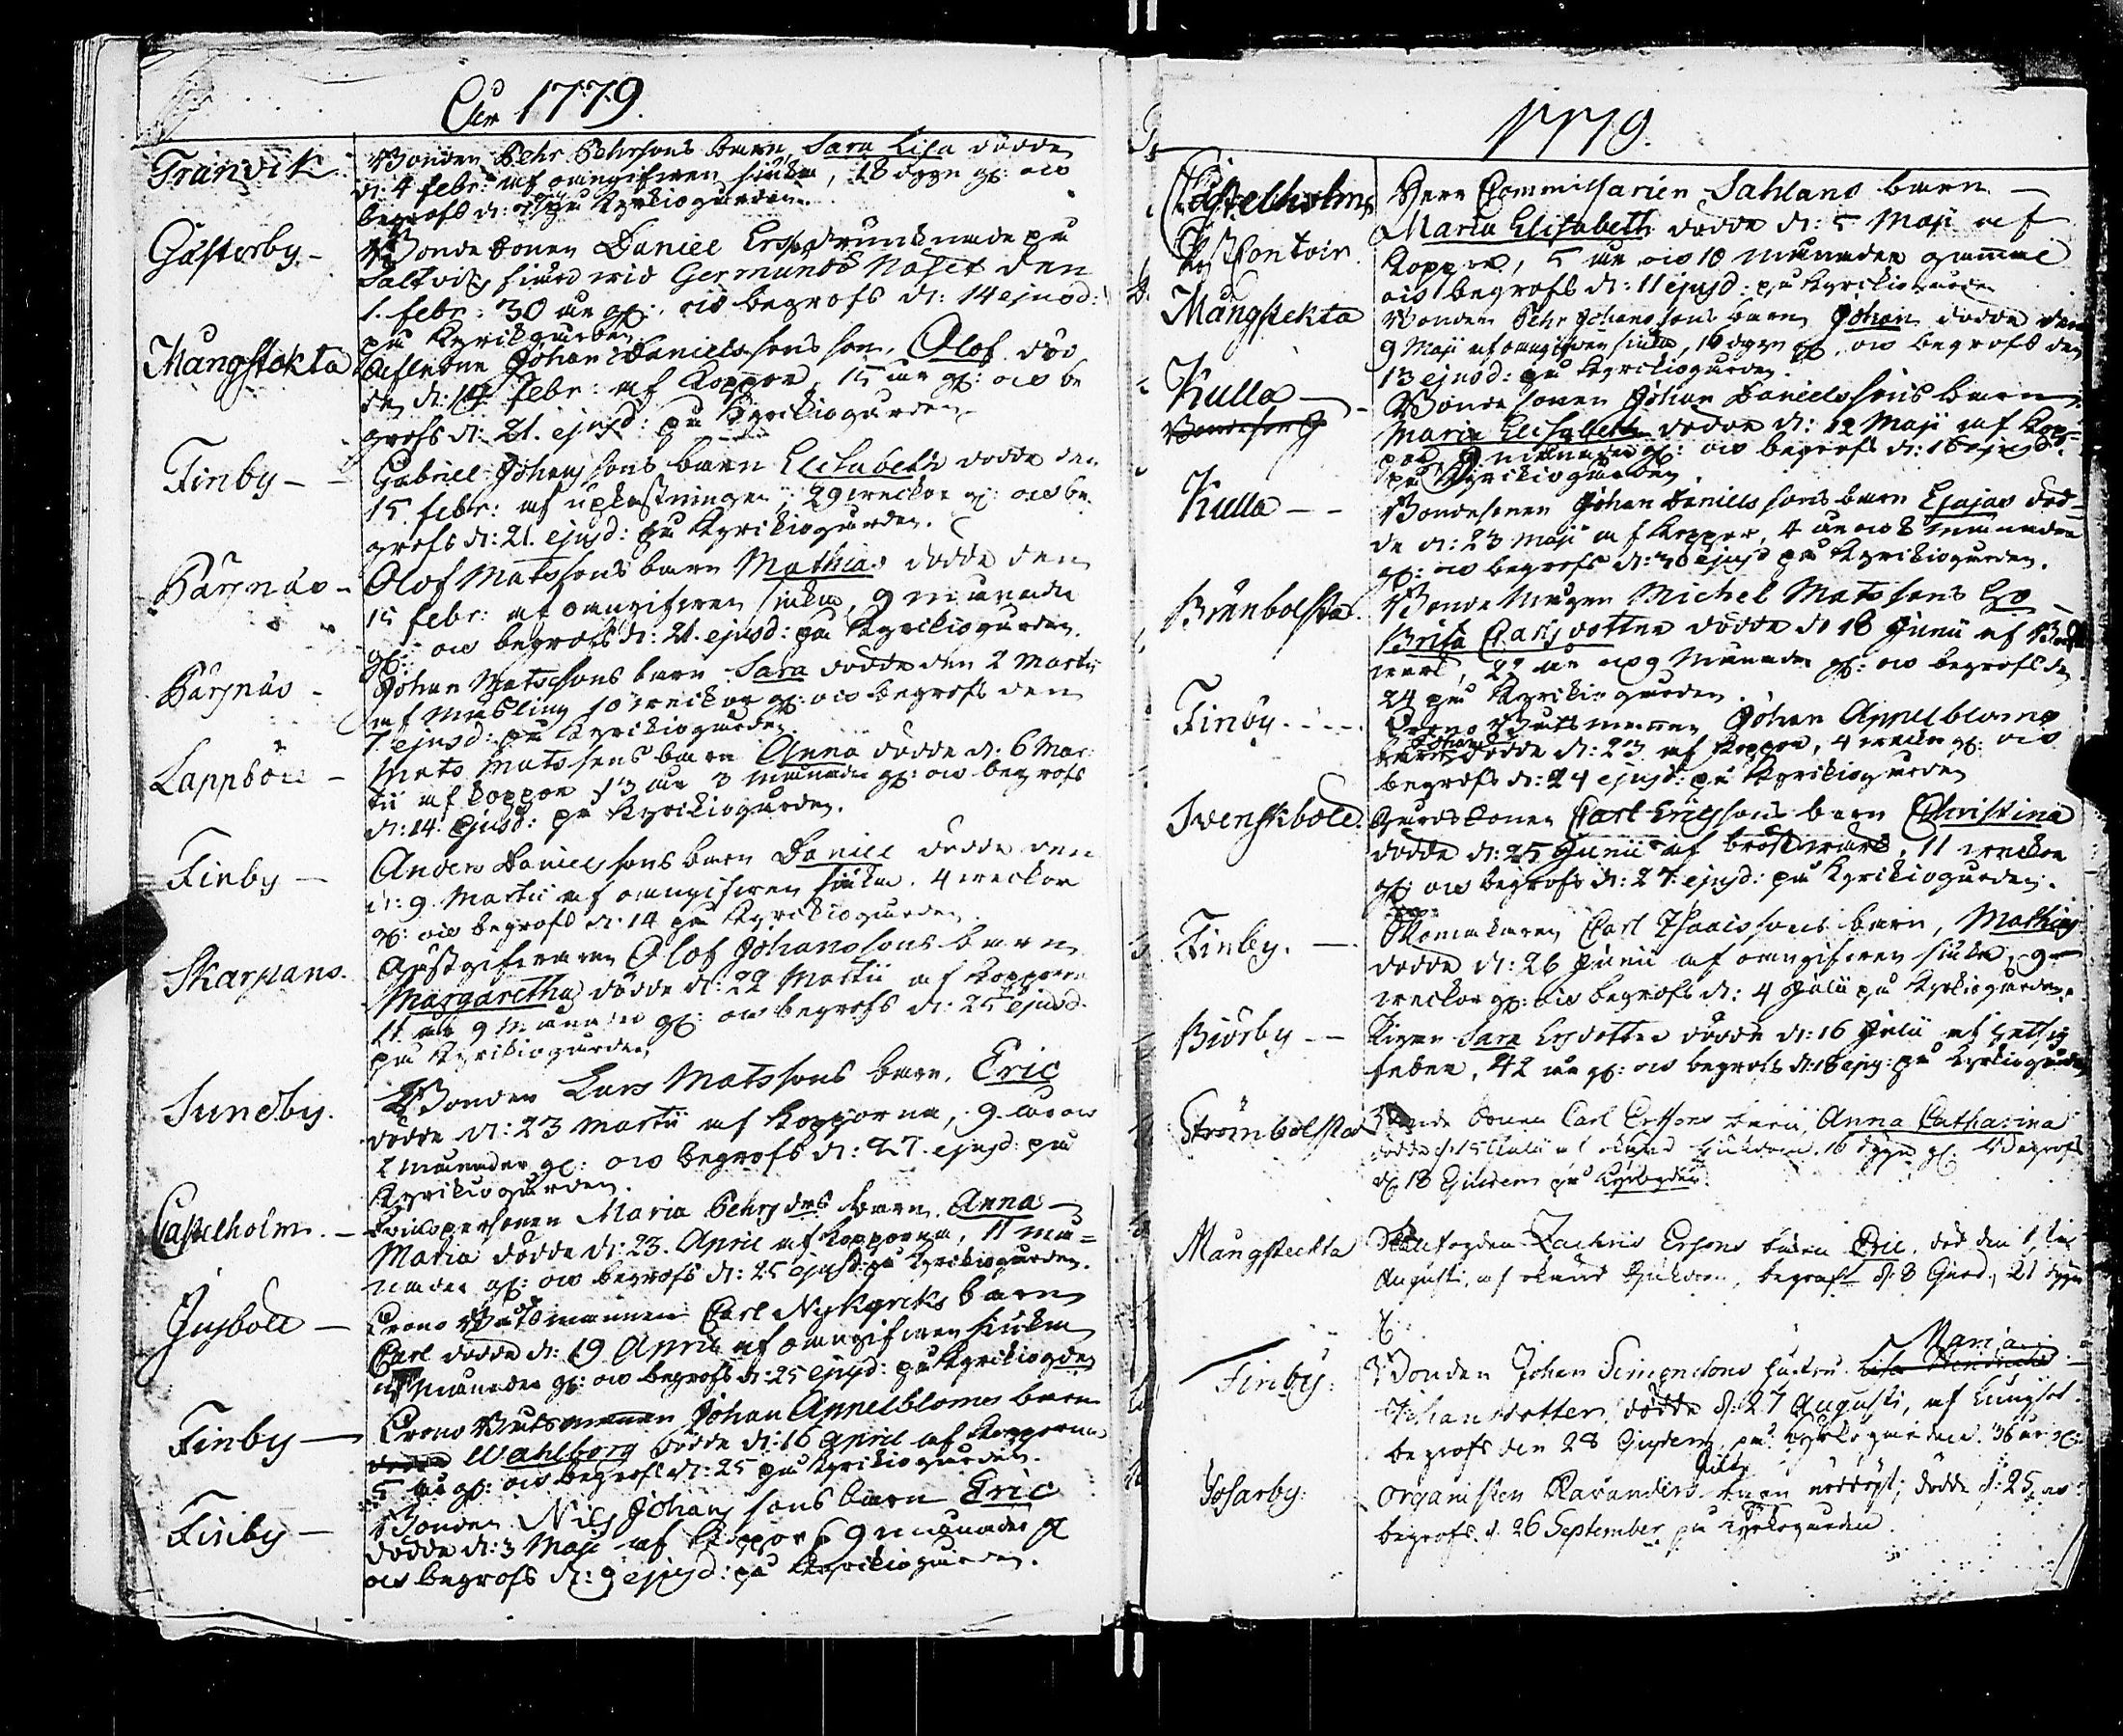 År 1779.
Tranvik. Bonden Pehr Pehrsons barn Sara Lisa dödde
d: 4 febr: af oangifwen siuka, 18 dygn gl: ock
begrofs d: på Kyrkiogården.
Gästerby - Bondesonen Daniel Ersson drunknade på
Saltviks fiärd wid Germundö Näset den
1. febr: 30 år gl: ock begrofs d: 14 ejusd:
på Kyrkiogården
Mångstekta Aflidne Johan Danielssons son, Olof död
de d: 14 febr: af Koppor, 15 år gl: ock be
grofs d: 21. ejusd: på Kyrkiogården
Finby - Gabriel Johanssons barn Elisabeth dödde den
15. febr: af upkastningen, 29 weckor gl: ock be
grofs d: 21. ejusd: på Kyrkiogården.
Bärsnäs - Olof Matssons barn Mathias dödde den
15 febr: af oangifwen siuka, 9 månader
gl: ock begrofs d: 21. ejusd: på Kyrkiogården.
Bärsnäs - Johan Matssons barn Sara dödde den 2 Martii
af Mässling 10 weckor gl: ock begrofs den
7. ejusd: på Kyrkiogården
Lappböle - Mats Matssons barn Anna dödde d: 6 Mar
tii af koppor 13 år 3 månader gl: ock begrofs
d: 14. ejusd: på Kyrkiogården.
Finby - Anders Danielssons barn Daniel dödde den
d: 9. Martii af oangifwen siuka. 4 weckor
gl: ock begrofs d: 14 på Kyrkiogården.
Skarpans. Gästgifwaren Olof Johanssons barn
Margaretha dödde d: 22 Martii af Kopporna
11 år 9 månader gl: ock begrofs d: 25 ejusd.
på Kyrkiogården
Sundby. Bonden Lars Matssons barn, Eric
dödde d: 23 Martii af Kopporna, 9 år ock
2 månader gl: ock begrofs d: 27. ejusd: på
Kyrkiogården.
Castelholm. - Qvinspersonen Maria Pehrsdrs barn, Anna
Maria dödde d: 23. April af Kopporna, 11 må=
nader gl: ock begrofs d: 25 ejusd: på Kyrkiogården.
Jusböle - Crono Båtsmannen Carl Nykyrks barn
Carl dödde d: 19 April af oangifwen siuka
månader gl: ock begrofs d: 25 ejusd: på Kyrkiogden
Finby - Crono Båtsmannen Johan Appelbloms barn
Wahlborg dödde d: 16 April af Kopporna
5 år gl: ock begrofs d: 25 på Kyrkiogården.
Finby - Bonden Nils Johanssons barn Eric
dödde d: 3 Maji af Koppor 9 månader gl
ock begrofs d: 9 ejusd: på Kyrkiogården.
1779.
Castelholms Herr Commissarien Sahlans barn -
Contoir. Maria Elisabeth dödde d: 5 Maji af
Koppor, 5 år ock 10 månader gammal
ock begrofs d: 11 ejusd: på Kyrkiogården
Mångstekta Bonden Pehr Johanssons barn Johan dödde den
9 Maji af oangifwen siuka, 16 dygn gl. ock begrofs den
13 ejusd: på Kyrkiogården.
Kulla - Bondesonen Johan Danielssons barn
Bondesonen Maria Elisabeth dödde d: 12 Maji af Kop=
por 9 månader gl: ock begrofs d: 16 ejusd:
på Kyrkiogården.
Kulla - - Bondesonen Johan Danielssons barn Esajas död=
de d: 23 Maji af Koppor, 4 år ock 8 månader
gl: ock begrofs d: 30 ejusd på Kyrkiogården.
Brånbolsta Bonde Mågen Michel Matssons
Brita Carlsdotter dödde d: 18 Junii af
werk, 22 år ock 9 Månader gl: ock begrofs den
24 på Kyrkiogården.
Finby - - - Crono Båtsmannen Johan Appelbloms
barn Johan dödde d: 23 af Koppor, 4 weckor gl: ock
begrofs d: 24 ejusd: på Kyrkiogården
Svenskböle. Gårdskonen Carl Ericssons barn Christina
dödde d: 25 Junii af bröstwärk, 11 weckor
gl: ock begrofs d: 27. ejusd: på Kyrkiogården.
Finby. - Skomakaren Carl Isaacssons barn, Mathias
dödde d: 26 Junii af oangifwen siuka, 9
weckor gl: ock begrofs d: 4 Julii på Kyrkiogården.
Biörby - - Pigan Sara Ersdotter dödde d: 16 Julii af hetsig
feber, 42 år gl: ock begrofs d: 18 ejus: på Kyrkiogården
Strömbolsta Bonde sonen Carl Erssons barn, Anna Catharina
dödde d. 15 Julii af okänd siukdom. 16 dygn gl. begrofs
d. 18 Ejusdem på Kyrkogden.
Mångsteckta Zachris Ersons barn Eric, död den 1.
Augusti, af okänd Siukdom, begrafs d. 8 Ejusd. 21 dygn
gl:
Finby: Bonden Johan Simonssons hustru Lisa Hindrichs Maria
Johansdotter, dödde d: 27 Augusti, af lungsot.
begrofs den 28 Ejusdem på Kyrkogården. 36 år gl:
Tosarby: Organisten Ravanders barn nöddöpt, dödde d: 25. ock
begrofs d. 26 September på Kyrkogården.